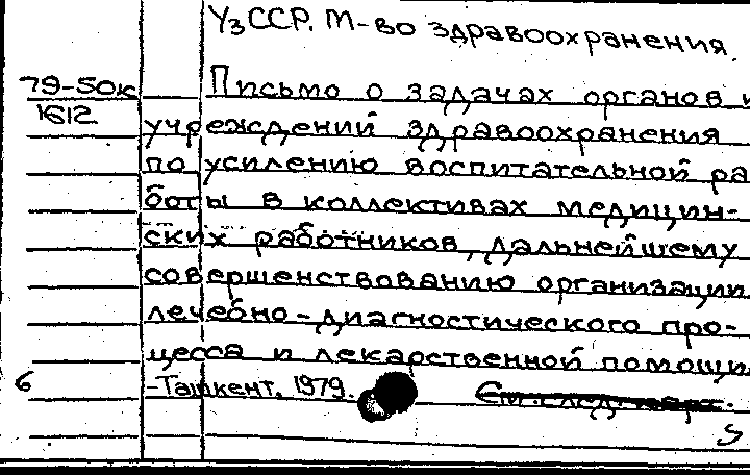 УзССР. М-во здравоохранения.
79-50к Письмо о задачах органов и
1612
учреждений здравоохранения
по усилению воспитательной ра
боты в коллективах медицин-
ских работников, дальнейшему
совершенствованию организации
лечебно-диагностического про-
цесса и лекарственной помощи.
6 -Ташкент, 1979.